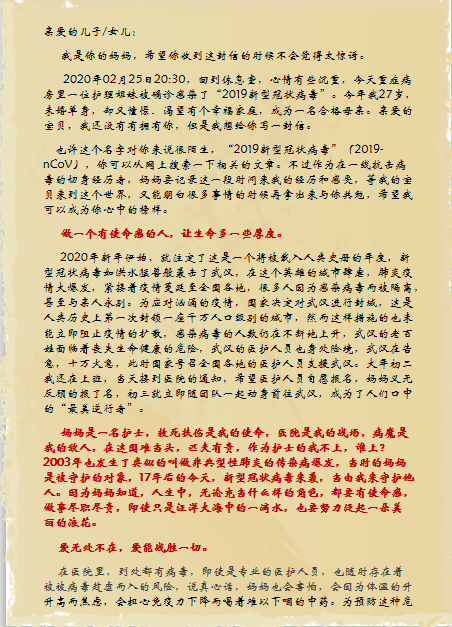 亲爱的儿子/女儿：
我是你的妈妈，希望你收到这封信的时候不会觉得太惊讶。
2020年02月25日20:30，回到休息室，心情有些沉重，今天重症病
房里一位护理姐妹被确诊感染了“2019新型冠状病毒”。今年我27岁，
未婚单身，却又憧憬、渴望有个幸福家庭，成为一名合格母亲。亲爱的
宝贝，我还没有有拥有你，但是我想给你写一封信。
也许这个名字对你来说很陌生，“2019新型冠状病毒”（2019-
nCoV），你可以从网上搜索一下相关的文章。不过作为在一线抗击病
毒的切身经历者，妈妈要记录这一段时间来我的经历和感受，等我的宝
贝来到这个世界，又能明白很多事情的时候再拿出来与你共勉，希望我
可以成为你心中的榜样。
做一个有使命感的人，让生命多一些厚度。
2020年新年伊始，就注定了这是一个将被载入人类史册的年度，新
型冠状病毒如洪水猛兽般袭击了武汉，在这个英雄的城市肆虐，肺炎疫
情大爆发，紧接着疫情蔓延至全国各地，很多人因为感染病毒而被隔离，
甚至与亲人永别。为应对汹涌的疫情，国家决定对武汉进行封城，这是
人类历史上第一次封锁一座千万人口级别的城市，然而这样措施的也未
能立即阻止疫情的扩散，感染病毒的人数仍在不断地上升，武汉的老百
姓面临着丧失生命健康的危险，武汉的医护人员也身处险境，武汉在告
急，十万火急，此时国家号召全国各地的医护人员支援武汉。大年初二
我还在上班，当天接到医院的通知，希望医护人员自愿报名，妈妈义无
反顾的报了名，初三就立即随团队一起动身前往武汉，成为了人们口中
的“最美逆行者”。
妈妈是一名护士，救死扶伤是我的使命，医院是我的战场，病魔是
我的敌人，在这国难当头，匹夫有责，作为护士的我不上，谁上？
2003年也发生了类似的叫做非典型性肺炎的传染病爆发，当时的妈妈
是被守护的对象，17年后的今天，新型冠状病毒来袭，当由我来守护他
人。因为妈妈知道，人生中，无论充当什么样的角色，都要有使命感，
做事尽职尽责，即使只是汪洋大海中的一滴水，也要努力泛起一朵美
丽的浪花。
爱无处不在，爱能战胜一切。
在医院里，到处都有病毒，即使是专业的医护人员，也随时存在着
被被病毒趁虚而入的风险，说真心话，妈妈也会害怕，会因为体温的升
升高而焦虑，会担心免疫力下降而喝着难以下咽的中药。为预防这种危